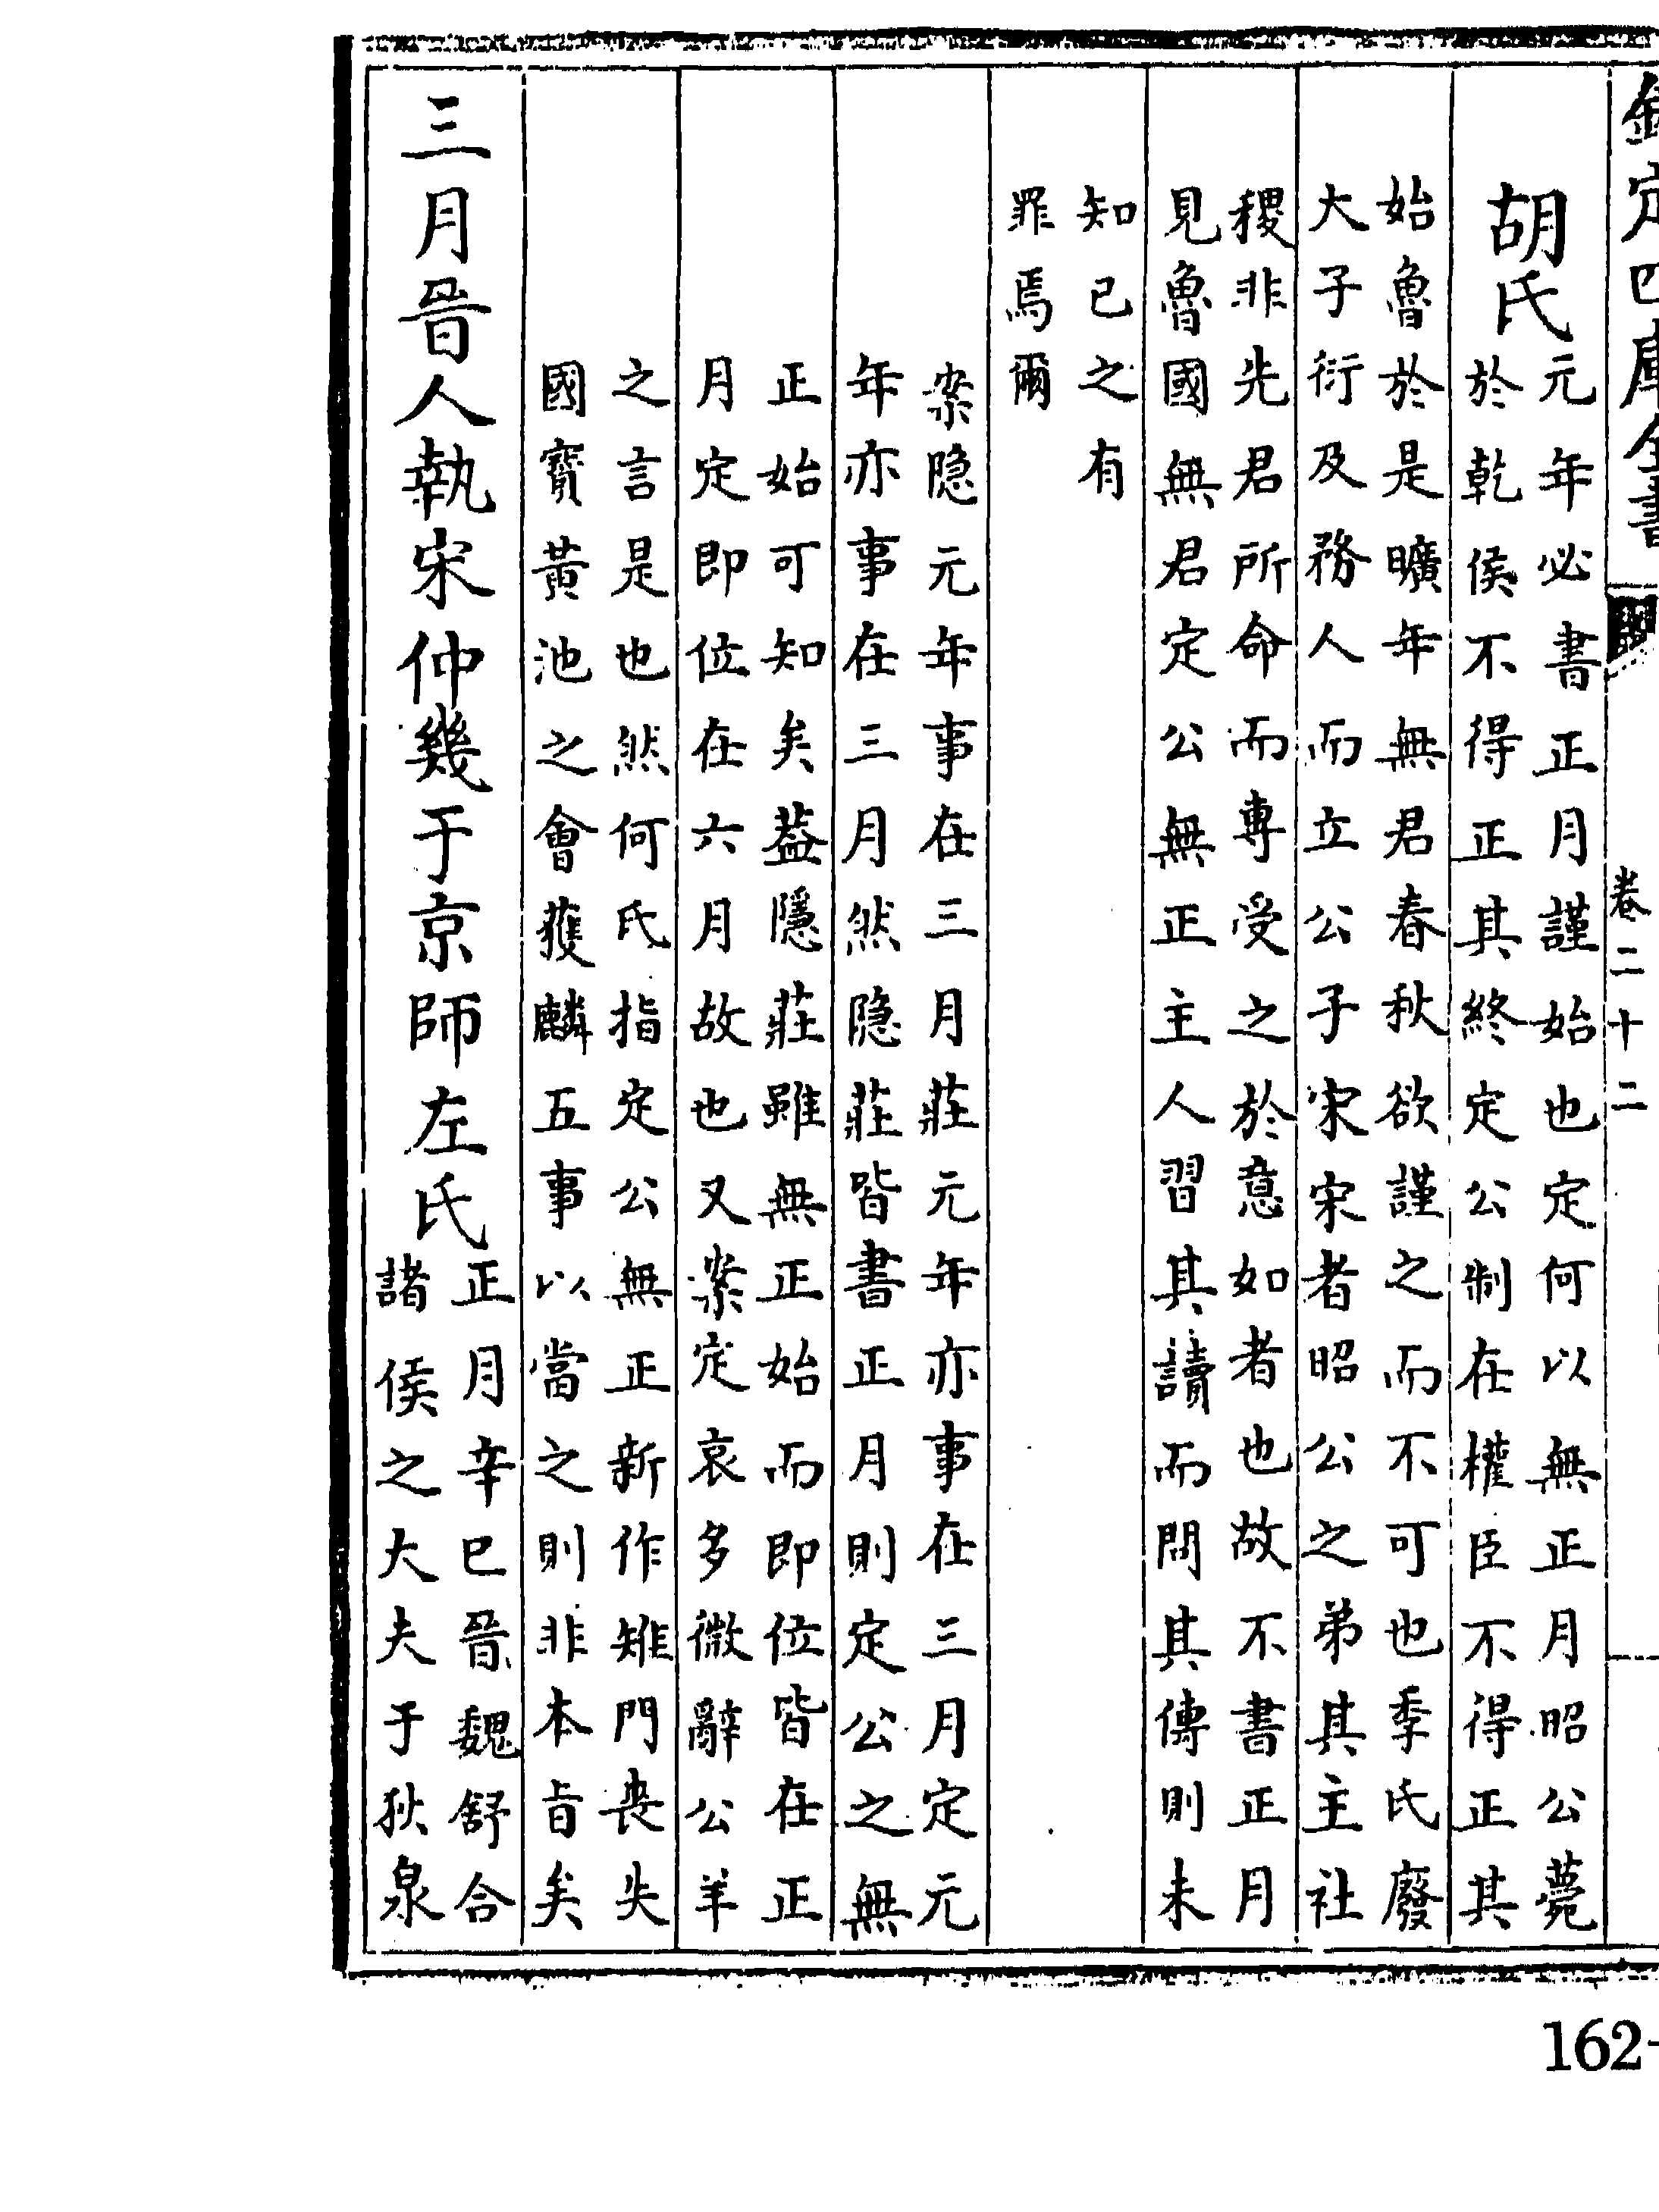 欽定四庫全書
卷二十二
胡氏
元年必書正月謹始也定何以無正月昭公薨
於乾侯不得正其終定公制在權臣不得正其
始魯於是曠年無君春秋欲謹之而不可也季氏廢
大子衍及務人而立公子宋宋者昭公之弟其主社
稷非先君所命而專受之於意如者也故不書正月
見魯國無君定公無正主人習其讀而問其傳則未
知己之有
罪焉爾
案隐元年事在三月莊元年亦事在三月定元
年亦事在三月然隐莊皆書正月則定公之無
正始可知矣葢隱莊雖無正始而即位皆在正
月定即位在六月故也又案定哀多微辭公羊
之言是也然何氏指定公無正新作雉門喪失
國寳黃池之會獲麟五事以當之則非本旨矣
三月晉人執宋仲幾于京師左氏
正月辛巳晉魏舒合
諸侯之大夫于狄泉
162-